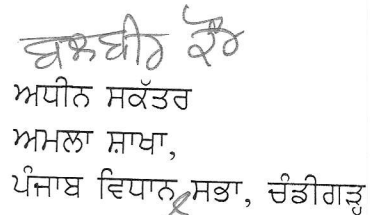 ਬਲਬੀਰ ਕੌਰ
ਅਧੀਨ ਸਕੱਤਰ
ਅਮਲਾ ਸ਼ਾਖਾ,
ਪੰਜਾਬ ਵਿਧਾਨ ਸਭਾ, ਚੰਡੀਗੜ੍ਹ